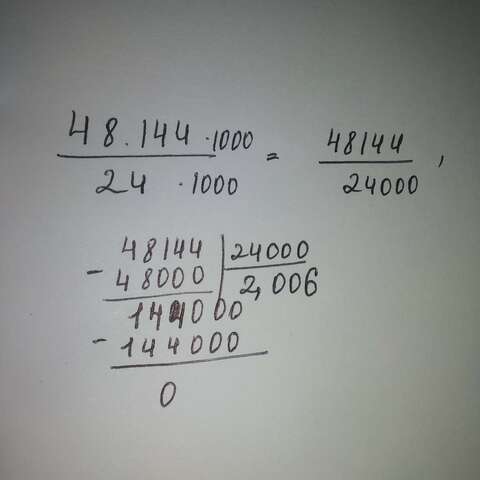 48.144 · 1000 = 48144 ,
24 · 1000 24000
48144 24000
- 48000 2,006
144000
- 144000
0